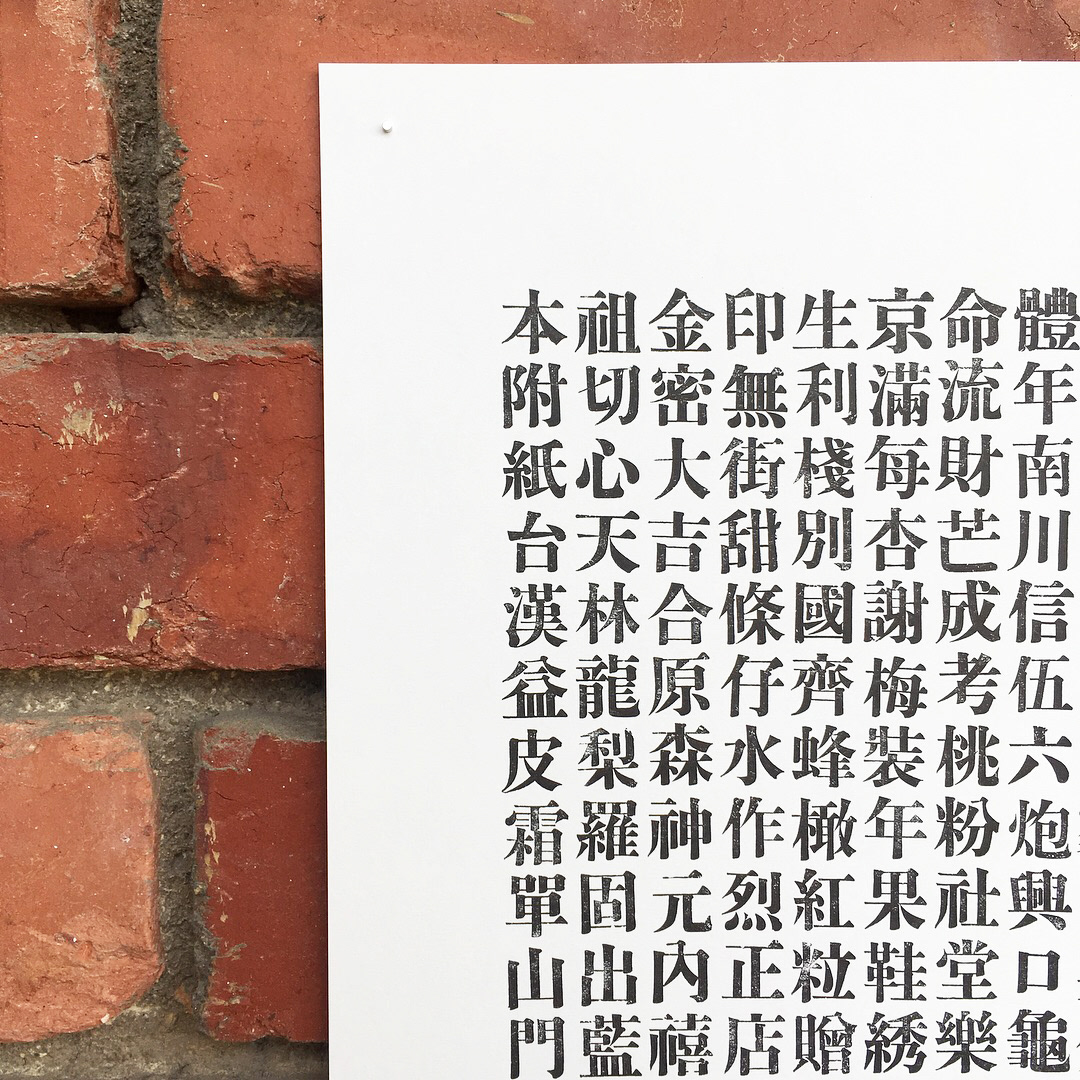 本祖金印生京命體
附切密無利滿流年
紙心大街棧每財南
台天吉甜別杏芒川
漢林合條國謝成信
益龍原仔齊梅考伍
皮梨森水蜂裝桃六
霜羅神作橄年粉炮
單固元烈紅果社興
山出內正粒鞋堂口
門藍禧店贈綉樂龜